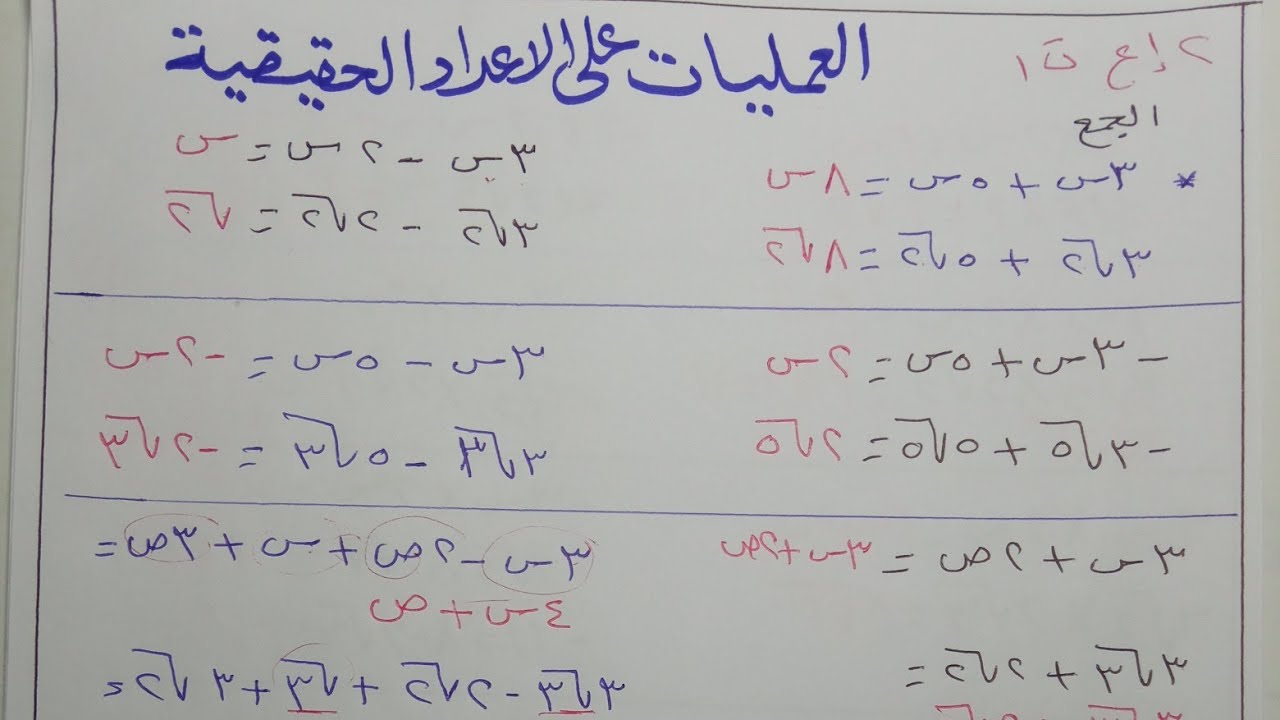 ٢ إع ت١
العمليات على الأعداد الحقيقية
الجمع
* ٣س + ٥س = ٨س
٣√٢ + ٥√٢ = ٨√٢
٣س - ٢س = س
٣√٢ - ٢√٢ = √٢
- ٣س + ٥س = ٢س
- ٣√٥ + ٥√٥ = ٢√٥
٣س - ٥س = -٢س
٣√٣ - ٥√٣ = -٢√٣
٣س + ٢ص = ٣س + ٢ص
٣√٣ + ٢√٢ =
٣س - ٢ص + س + ٣ص =
٤س + ص
٣√٣ - ٢√٢ + √٣ + ٣√٢ =